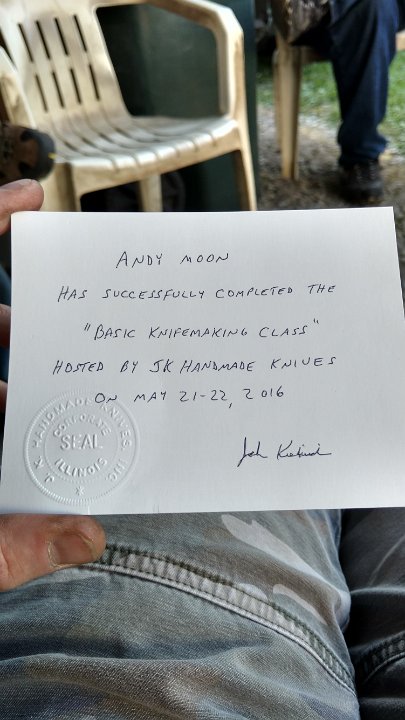 ANDY MOON
HAS SUCCESSFULLY COMPLETED THE
"BASIC KNIFEMAKING CLASS"
HOSTED BY JK HANDMADE KNIVES
ON MAY 21-22, 2016
J.K. HANDMADE KNIVES, INC.
CORPORATE
SEAL
ILLINOIS
John